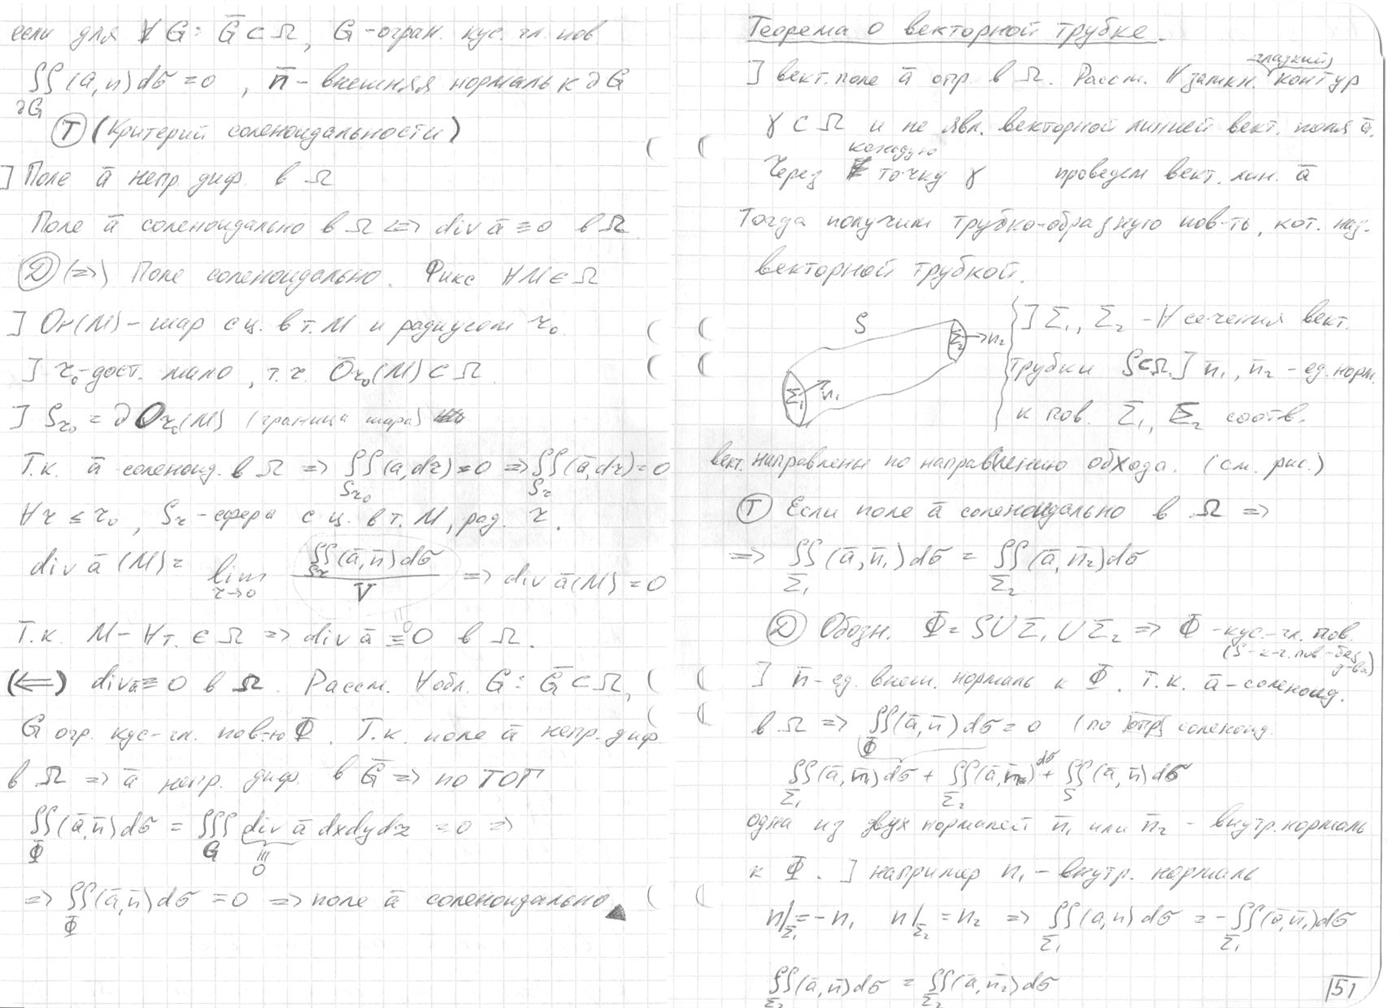 если для ∀ G: G̅ ⊂ Ω, G - огран. кус. гл. пов
∬(a, n)dσ = 0 , n̅ - внешняя нормаль к ∂G
∂G
Ⓣ (Критерий соленоидальности)
] Поле a̅ непр. диф. в Ω
Поле a̅ соленоидально в Ω ⇔ div a̅ ≡ 0 в Ω
Ⓓ (⇒) Поле соленоидально. Фикс ∀M ∈ Ω
] Or(M) - шар с ц. в т. M и радиусом r₀
] r₀ - дост. мало , т.ч. O̅r₀(M) ⊂ Ω
] Sr₀ = ∂Or₀(M) (граница шара)
Т.к. a̅ соленоид. в Ω ⇒ ∬(a, dr) = 0 ⇒ ∬(a̅, dr) = 0
Sr₀ Sr
∀r ≤ r₀ , Sr - сфера с ц. в т. M, рад. r.
div a̅ (M) = lim ∬(a̅, n̅)dσ / V ⇒ div a̅(M) = 0
r→0 Sr
Т.к. M - ∀ т. ∈ Ω ⇒ div a̅ ≡ 0 в Ω.
(⇐) div a̅ ≡ 0 в Ω. Рассм. ∀ обл. G: G̅ ⊂ Ω,
G огр. кус-гл. пов-ю Φ. Т.к. поле a̅ непр. диф
в Ω ⇒ a̅ непр. диф. в G̅ ⇒ по ТОГ
∬(a̅, n̅)dσ = ∭ div a̅ dxdydz = 0 ⇒
Φ G ≡ 0
⇒ ∬(a̅, n̅)dσ = 0 ⇒ поле a̅ соленоидально ▲
Φ
Теорема о векторной трубке.
] вект. поле a̅ опр. в Ω. Рассм. ∀ замкн. (гладкий) контур
γ ⊂ Ω и не явл. векторной линией вект. поля a̅.
Через каждую точку γ проведем вект. лин. a̅
Тогда получим трубко-образную пов-ть, кот. наз.
векторной трубкой.
S Σ₁ n₁ Σ₂ n₂
] Σ₁, Σ₂ - ∀ сечения вект.
трубки S ⊂ Ω ] n̅₁, n̅₂ - ед. норм.
к пов. Σ₁, Σ₂ соотв.
вект. направлены по направлению обхода. (см. рис.)
Ⓣ Если поле a̅ соленоидально в Ω ⇒
⇒ ∬(a̅, n̅₁)dσ = ∬(a̅, n̅₂)dσ
Σ₁ Σ₂
Ⓓ Обозн. Φ = S∪Σ₁∪Σ₂ ⇒ Φ - кус.-гл. пов.
] n̅ - ед. внеш. нормаль к Φ. Т.к. a̅ - соленоид.
в Ω ⇒ ∬(a̅, n̅)dσ = 0 (по опр соленоид.
Φ
∬(a̅, n̅)dσ + ∬(a̅, n̅)dσ + ∬(a̅, n̅)dσ
Σ₁ Σ₂ S
одна из двух нормалей n̅₁ или n̅₂ - внутр. нормаль
к Φ. ] например n₁ - внутр. нормаль
n|Σ₁ = -n₁ n|Σ₂ = n₂ ⇒ ∬(a, n)dσ = -∬(a̅, n̅₁)dσ
Σ₁ Σ₁
∬(a̅, n̅)dσ = ∬(a̅, n̅₂)dσ
Σ₂ Σ₂
51